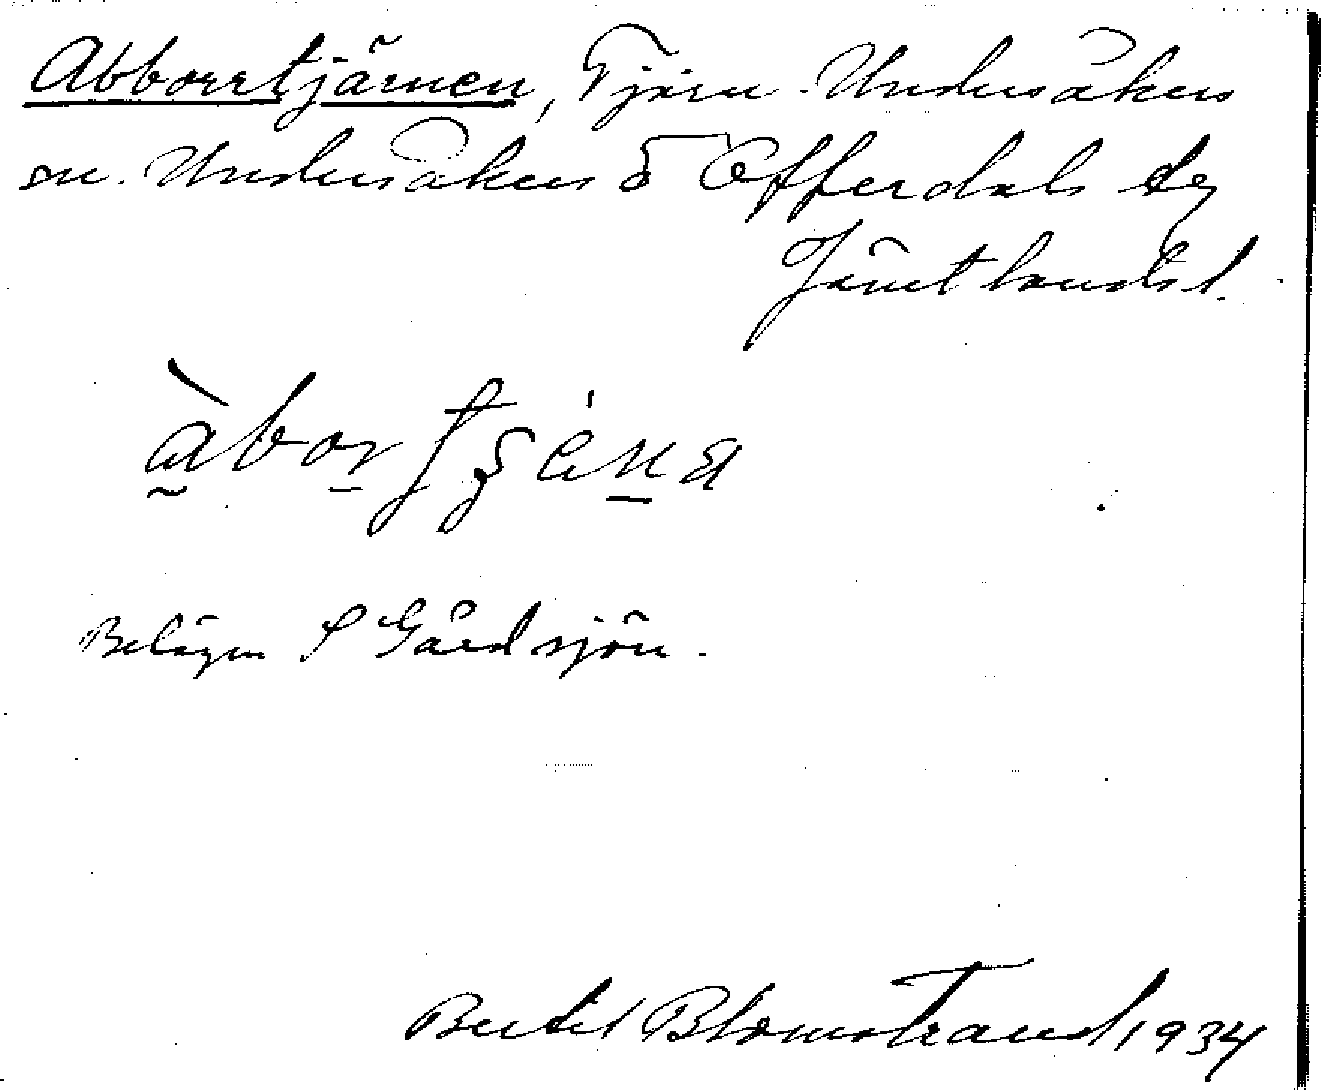 Abborrtjärnen, Tjärn. Undersåkers
sn. Undersåkers o Offerdals tg
Jämtlands l.
Belägen S Gårdsjön.
Bertil Blomstrand, 1934